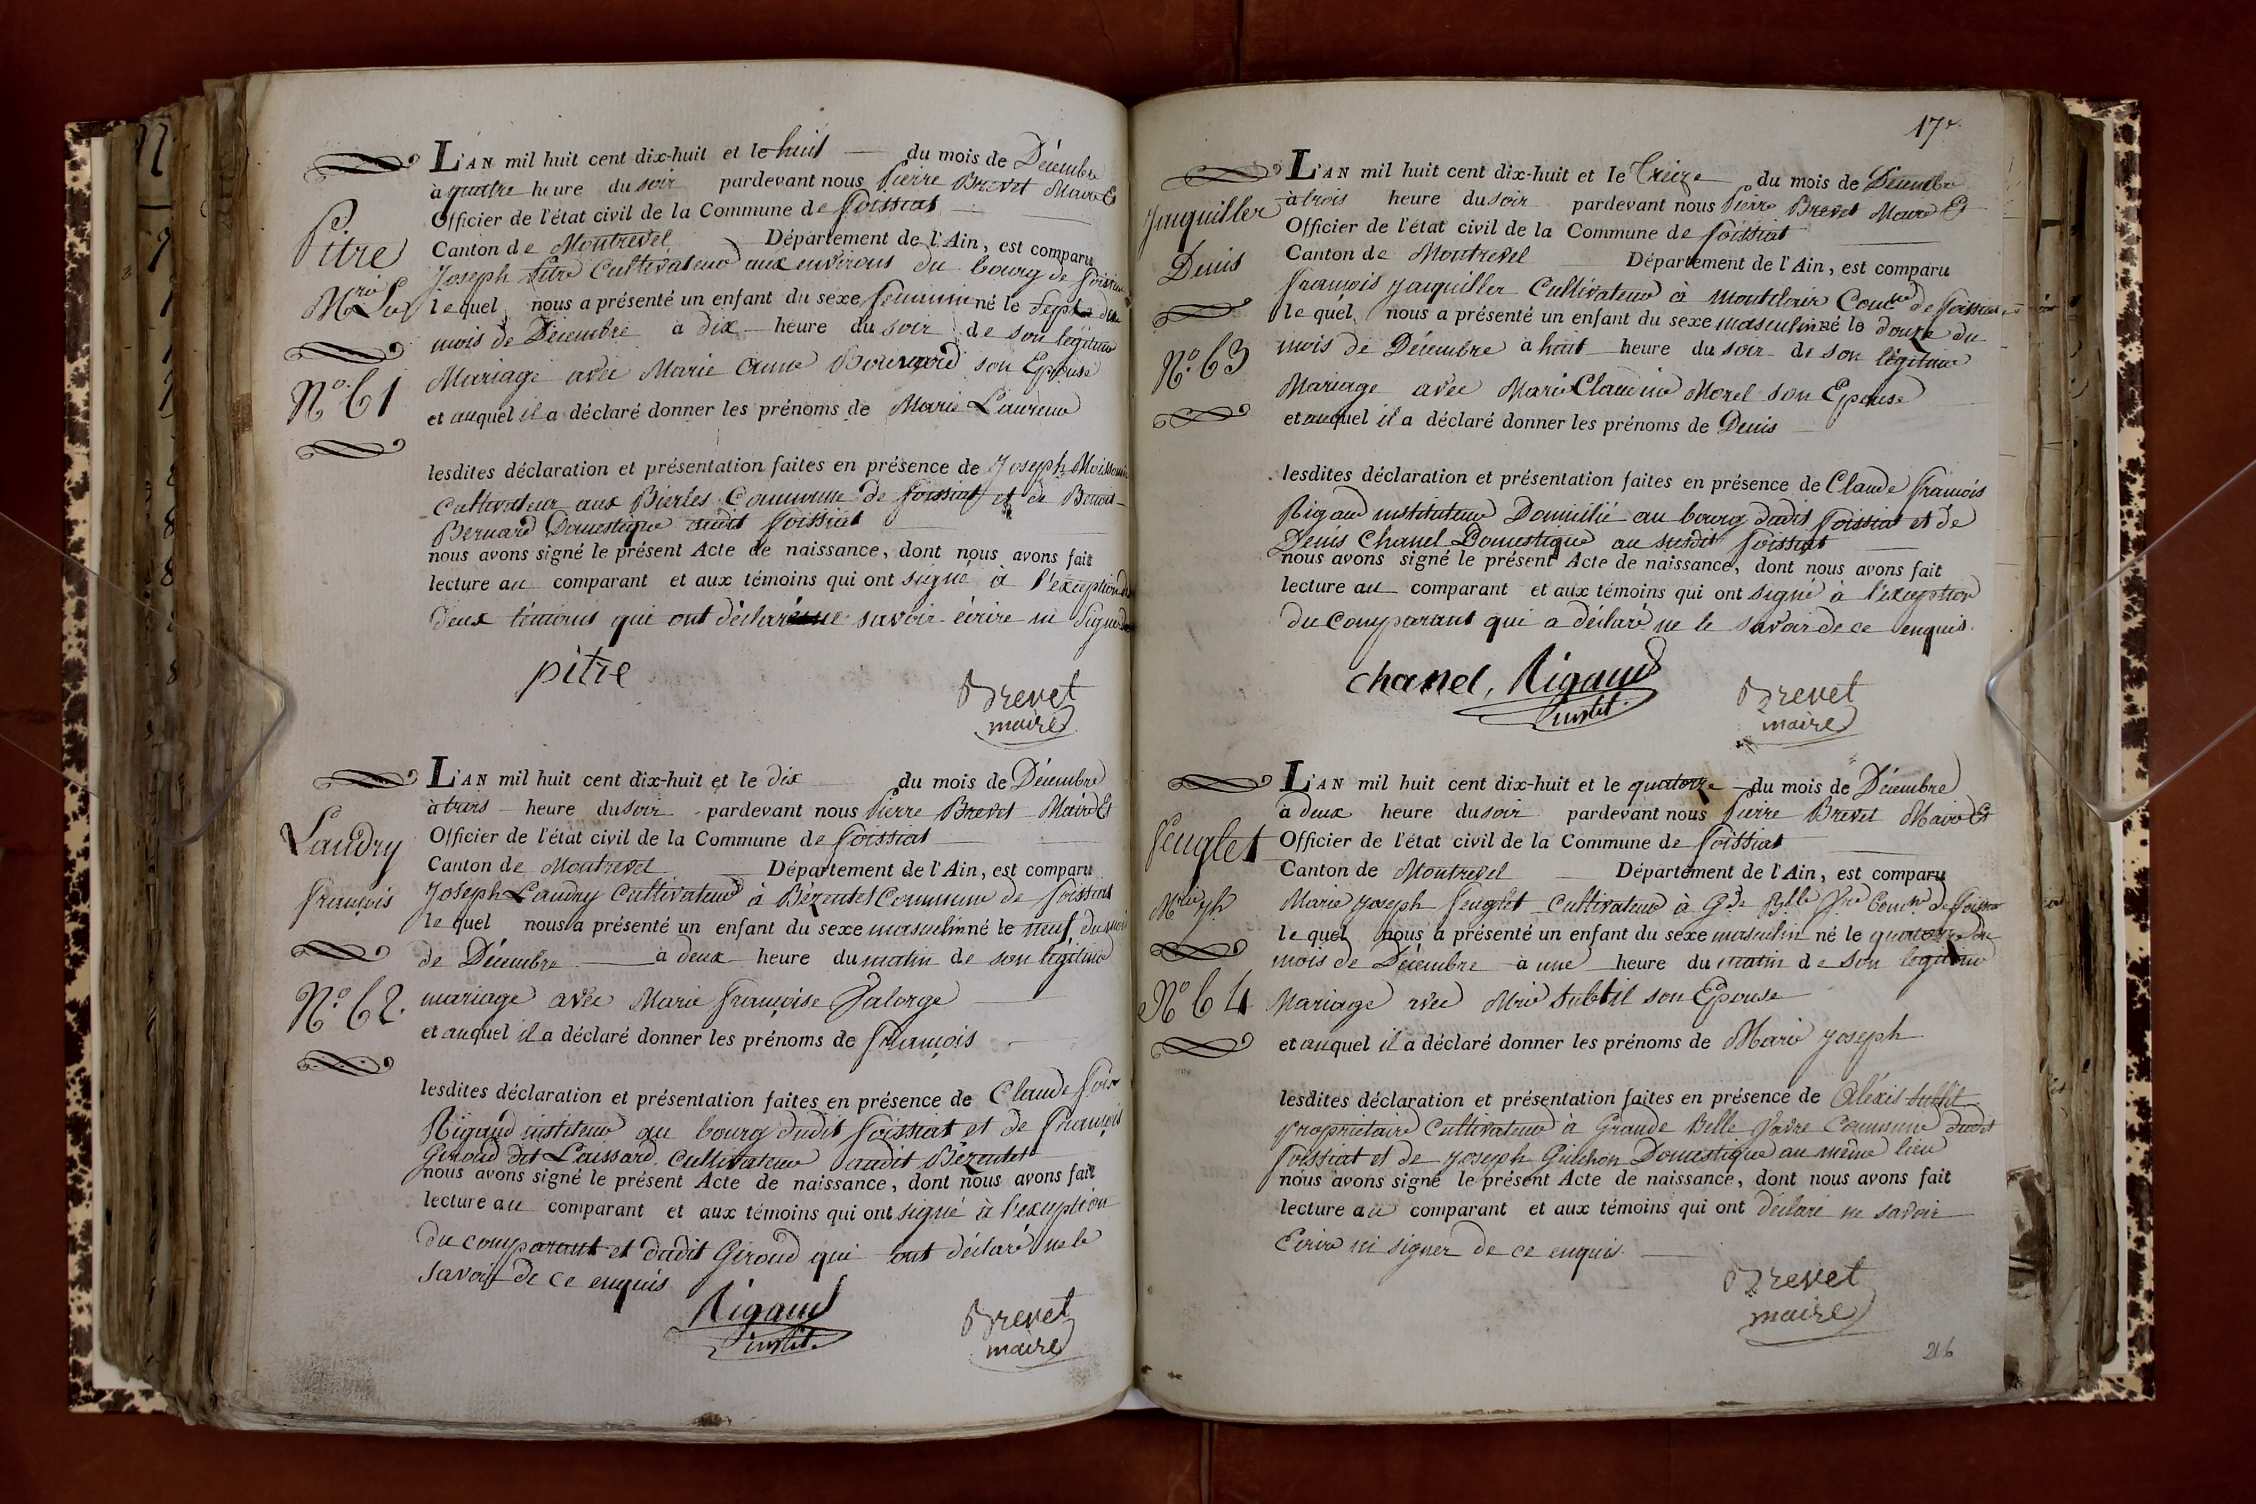 L'AN mil huit cent dix-huit et le huit du mois de Décembre
à quatre heure du soir pardevant nous Pierre Brevet Maire Et
Officier de l'état civil de la Commune de foissiat
Pitre
Canton de Montrevel Département de l'Ain, est comparu
Joseph Pitre Cultivateur aux environs du bourg de foissiat
le quel nous a présenté un enfant du sexe feminin né le Sept du
mois de Décembre à dix heure du soir de son légitime
N.º 61
Mariage avec Marie anne Bouvard son Epouse
et auquel il a déclaré donner les prénoms de Marie Laurence
lesdites déclaration et présentation faites en présence de Joseph
Cultivateur aux Biertes Commune de foissiat et de Benoit
Bernard Domestique audit foissiat
nous avons signé le présent Acte de naissance, dont nous avons fait
lecture au comparant et aux témoins qui ont signé à l'exception
deux témoins qui ont déclaré savoir écrire ni signer
pitre
Brevet
maire
L'AN mil huit cent dix-huit et le dix du mois de Décembre
à trois heure du soir pardevant nous Pierre Brevet Maire Et
Landry
Officier de l'état civil de la Commune de foissiat
Canton de Montrevel Département de l'Ain, est comparu
françois
Joseph Landry Cultivateur à Bézentet Commune de foissiat
le quel nous a présenté un enfant du sexe masculin né le neuf du mois
de Décembre à deux heure du matin de son légitime
N.º 62.
mariage avec Marie françoise Jalorge
et auquel il a déclaré donner les prénoms de françois
lesdites déclaration et présentation faites en présence de Claude fois
Rigaud instituteur au bourg dudit foissiat et de françois
Giroud dit Laissard Cultivateur audit Bézentet
nous avons signé le présent Acte de naissance, dont nous avons fait
lecture au comparant et aux témoins qui ont signé à l'exception
du comparant et dudit Giroud qui ont déclaré ne le
savoir de ce enquis
Rigaud
instit.
Brevet
maire
17
L'AN mil huit cent dix-huit et le Treize du mois de Décembre
à trois heure du soir pardevant nous Pierre Brevet Maire Et
Jauquiller
Officier de l'état civil de la Commune de foissiat
Denis
Canton de Montrevel Département de l'Ain, est comparu
françois jauquiller Cultivateur à Montclair Comne de foissiat
le quel nous a présenté un enfant du sexe masculin né le douze du
mois de Décembre à huit heure du soir de son légitime
N.º 63
Mariage avec Marie Claudine Morel son Epouse
et auquel il a déclaré donner les prénoms de Denis
lesdites déclaration et présentation faites en présence de Claude françois
Rigaud instituteur Domicilié au bourg dudit foissiat et de
Denis Chanel Domestique au susdit foissiat
nous avons signé le présent Acte de naissance, dont nous avons fait
lecture au comparant et aux témoins qui ont signé à l'exception
du comparant qui a déclaré ne le savoir de ce enquis.
chanel, Rigaud
instit.
Brevet
maire
L'AN mil huit cent dix-huit et le quatorze du mois de Décembre
à deux heure du soir pardevant nous Pierre Brevet Maire Et
feuglet
Officier de l'état civil de la Commune de foissiat
Canton de Montrevel Département de l'Ain, est comparu
Mrie jph
Marie joseph feuglet Cultivateur à Gde Blle Comne de foissiat
le quel nous a présenté un enfant du sexe masculin né le quatorze du
mois de Décembre à une heure du matin de son légitime
Nº 64
Mariage avec Mrie Subtil son Epouse
et auquel il a déclaré donner les prénoms de Marie joseph
lesdites déclaration et présentation faites en présence de Alexis Subtil
proprietaire Cultivateur à Grande Belle favre Commune dudit
foissiat et de joseph Guichon Domestique au même lieu
nous avons signé le présent Acte de naissance, dont nous avons fait
lecture au comparant et aux témoins qui ont déclaré ne savoir
Ecrire ni signer de ce enquis
Brevet
maire
216